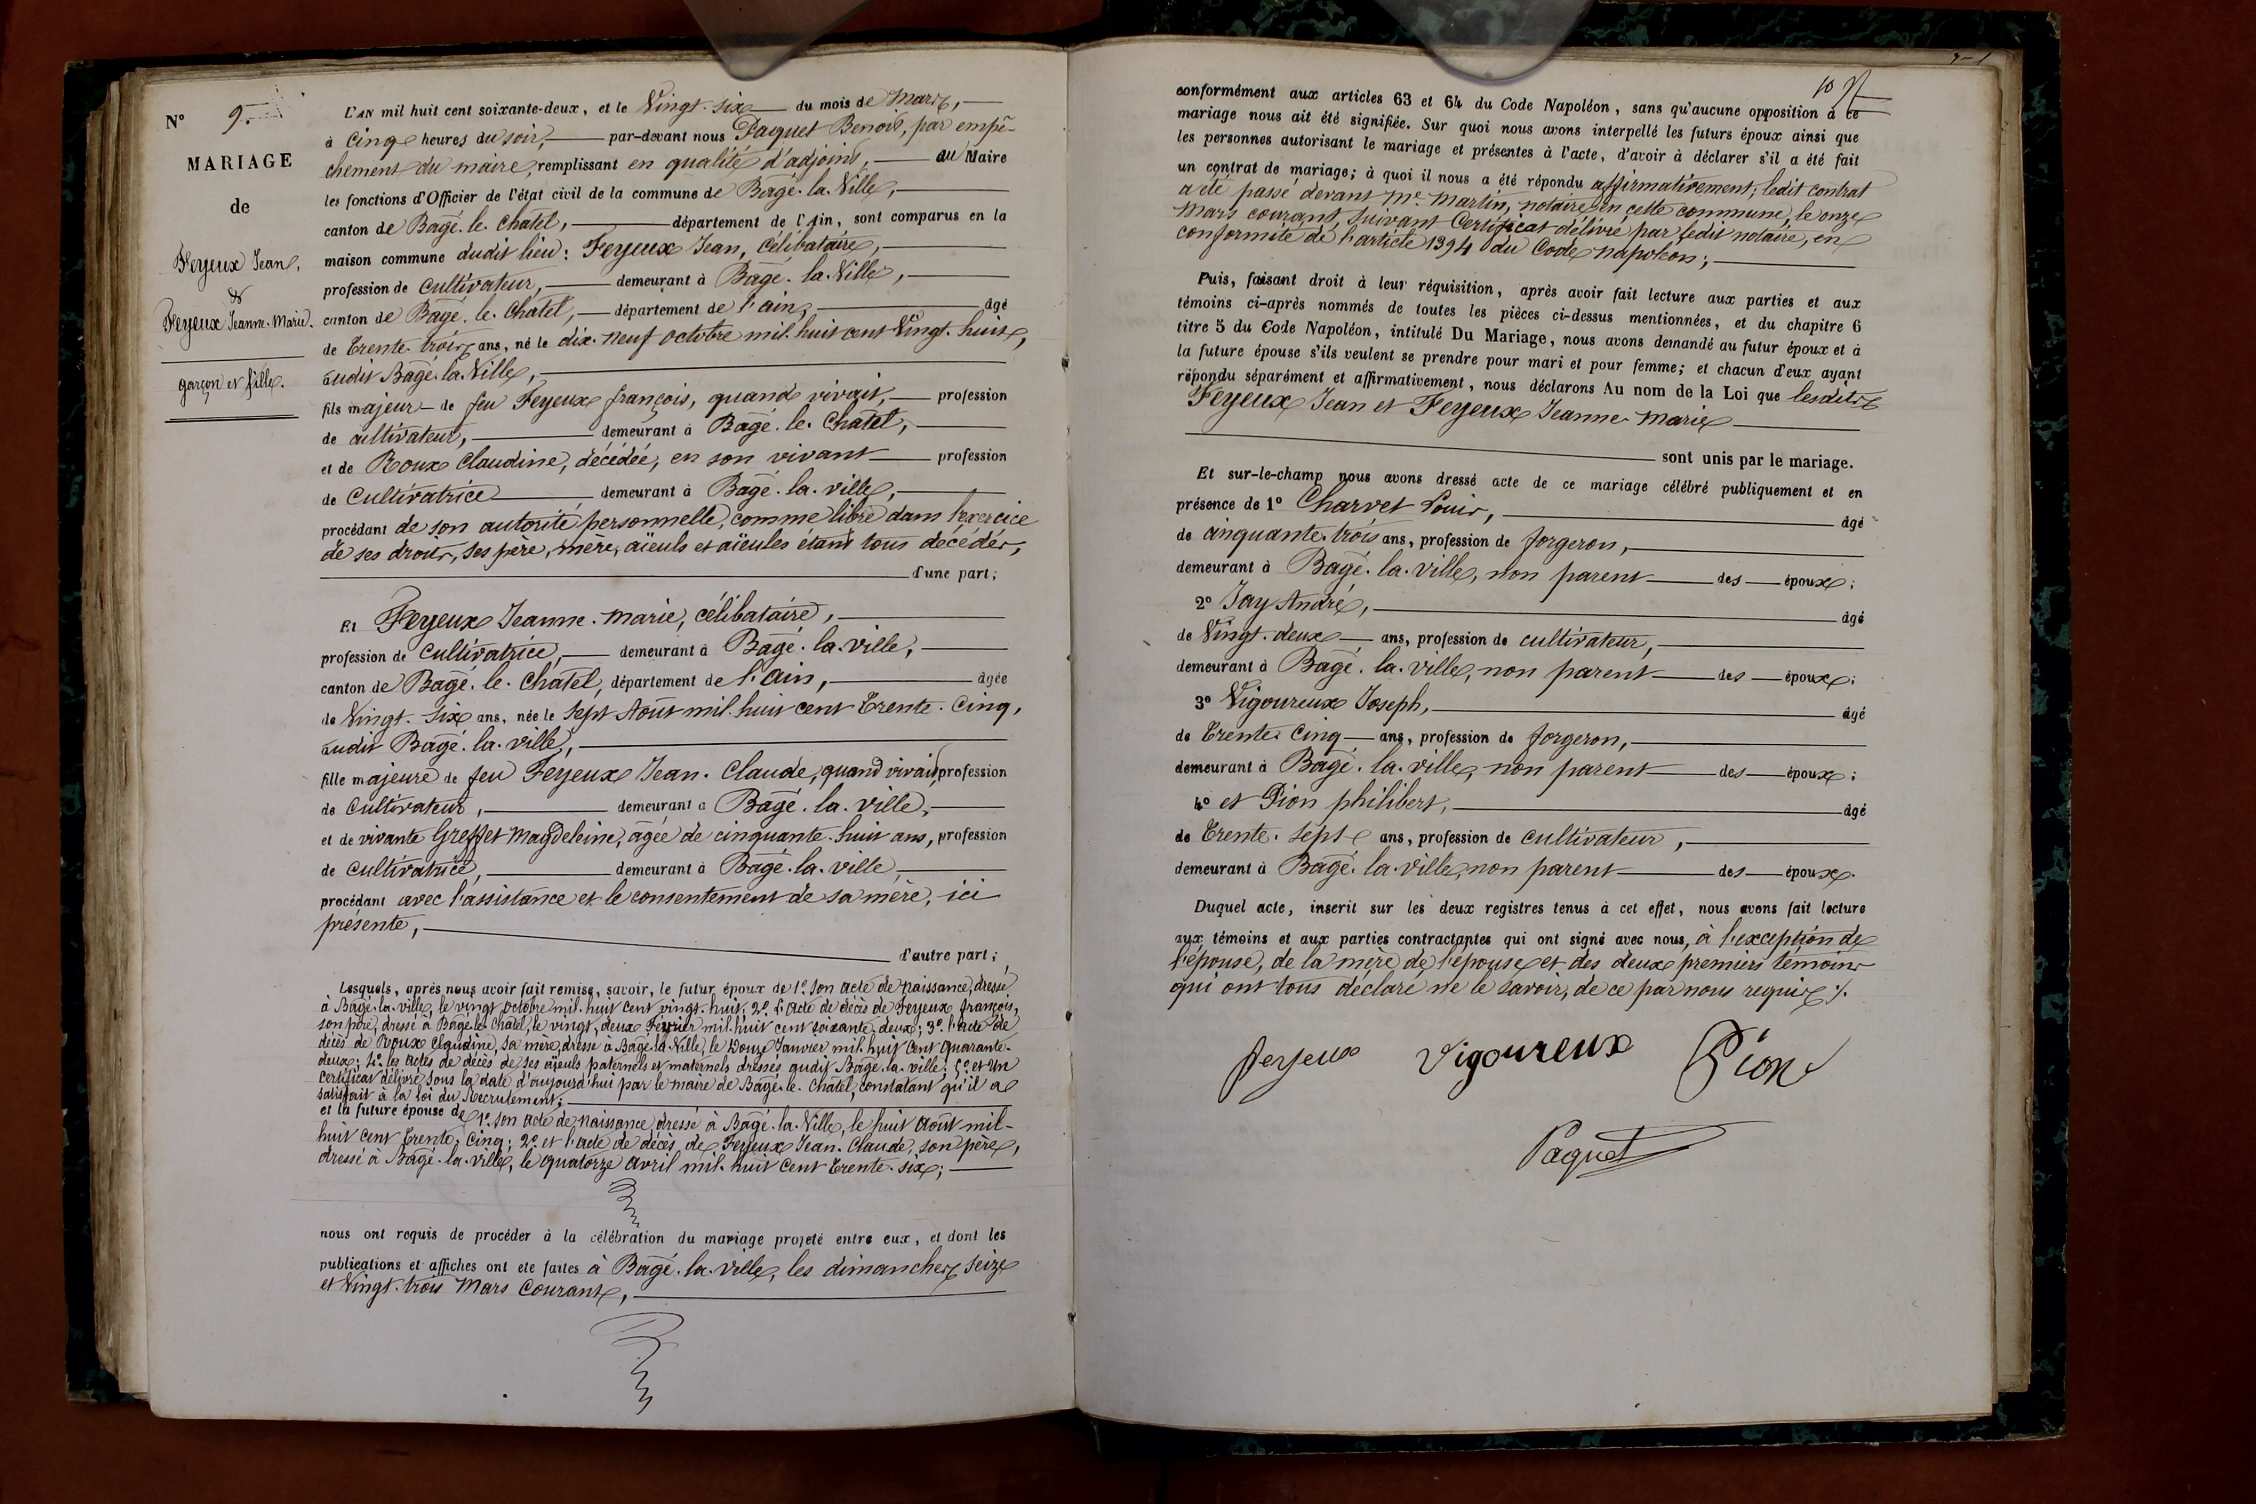 N° 9.
MARIAGE
de
Feyeux Jean,
&
Feyeux Jeanne-Marie.
garçon et fille.
L'AN mil huit cent soixante-deux, et le Vingt-six du mois de Mars,
à cinq heures du soir, par-devant nous Paquet Benoit, par empê-
chement du maire, remplissant en qualité d'adjoint, au Maire
les fonctions d'Officier de l'état civil de la commune de Bagé-la-Ville,
canton de Bagé-le-Chatel, département de l'Ain, sont comparus en la
maison commune dudit lieu: Feyeux Jean, célibataire,
profession de cultivateur, demeurant à Bagé-la-Ville,
canton de Bagé-le-Chatel, département de l'ain, âgé
de Trente-trois ans, né le dix-neuf octobre mil-huit cent Vingt-huit,
audit Bagé-la-Ville,
fils majeur de feu Feyeux françois, quand vivait, profession
de cultivateur, demeurant à Bagé-le-Chatel,
et de Roux Claudine, décédée, en son vivant profession
de Cultivatrice demeurant à Bagé-la-ville,
procédant de son autorité personnelle, comme libre dans l'exercice
de ses droits, ses père, mère, aïeuls et aïeules étant tous décédés,
d'une part;
Et Feyeux Jeanne-Marie, célibataire,
profession de cultivatrice, demeurant à Bagé-la-ville,
canton de Bagé-le-Chatel, département de l'ain, âgée
de Vingt-six ans, née le sept Aout mil-huit cent Trente-Cinq,
audit Bagé-la-ville,
fille majeure de feu Feyeux Jean-Claude, quand vivait, profession
de Cultivateur, demeurant à Bagé-la-ville,
et de vivante Greffet Magdeleine, âgée de cinquante-huit ans, profession
de Cultivatrice, demeurant à Bagé-la-ville
procédant avec l'assistance et le consentement de sa mère, ici
présente,
d'autre part;
Lesquels, après nous avoir fait remise, savoir, le futur époux de 1° son acte de naissance, dressé
à Bagé-la-ville, le vingt octobre mil-huit cent vingt-huit; 2° l'acte de décès de Feyeux françois,
son père, dressé à Bagé-le-Chatel, le vingt-deux Février mil-huit cent soixante-deux; 3° l'acte de
décès de Roux Claudine, sa mère, dressé à Bagé-la-Ville, le Douze Janvier mil-huit cent quarante-
deux; 4° les actes de décès de ses aïeuls paternels et maternels dressés audit Bagé-la-ville; 5° et un
Certificat délivré sous la date d'aujourd'hui par le maire de Bagé-le-Chatel, constatant qu'il a
satisfait à la loi du Recrutement;
et la future épouse de 1° son acte de naissance, dressé à Bagé-la-Ville, le huit Aout mil-
huit cent Trente-Cinq; 2° et l'acte de décès de Feyeux Jean-Claude, son père,
dressé à Bagé-la-ville, le quatorze Avril mil-huit cent Trente-six;
nous ont requis de procéder à la célébration du mariage projeté entre eux, et dont les
publications et affiches ont été faites à Bagé-la-Ville, les dimanches seize
et Vingt-trois Mars Courant,
10
conformément aux articles 63 et 64 du Code Napoléon, sans qu'aucune opposition à ce
mariage nous ait été signifiée. Sur quoi nous avons interpellé les futurs époux ainsi que
les personnes autorisant le mariage et présentes à l'acte, d'avoir à déclarer s'il a été fait
un contrat de mariage; à quoi il nous a été répondu affirmativement; ledit contrat
a été passé devant Me Martin, notaire en cette commune, le onze
Mars courant, suivant Certificat délivré par ledit notaire, en
conformité de l'article 1394 du Code Napoléon;
Puis, faisant droit à leur réquisition, après avoir fait lecture aux parties et aux
témoins ci-après nommés de toutes les pièces ci-dessus mentionnées, et du chapitre 6
titre 5 du Code Napoléon, intitulé Du Mariage, nous avons demandé au futur époux et à
la future épouse s'ils veulent se prendre pour mari et pour femme; et chacun d'eux ayant
répondu séparément et affirmativement, nous déclarons Au nom de la Loi que lesdits
Feyeux Jean et Feyeux Jeanne-Marie
sont unis par le mariage.
Et sur-le-champ nous avons dressé acte de ce mariage célébré publiquement et en
présence de 1° Charvet Louis, âgé
de cinquante-trois ans, profession de forgeron,
demeurant à Bagé-la-ville, non parent des époux;
2° Jay André, âgé
de Vingt-deux ans, profession de cultivateur,
demeurant à Bagé-la-ville, non parent des époux;
3° Vigoureux Joseph, âgé
de Trente Cinq ans, profession de forgeron,
demeurant à Bagé-la-ville, non parent des époux;
4° et Pion philibert, âgé
de Trente-sept ans, profession de cultivateur,
demeurant à Bagé-la-Ville, non parent des époux.
Duquel acte, inscrit sur les deux registres tenus à cet effet, nous avons fait lecture
aux témoins et aux parties contractantes qui ont signé avec nous, à l'exception de
l'épouse, de la mère de l'épouse et des deux premiers témoins
qui ont tous déclaré ne le savoir, de ce par nous requis ./.
feyeux Vigoureux Pion
Paquet